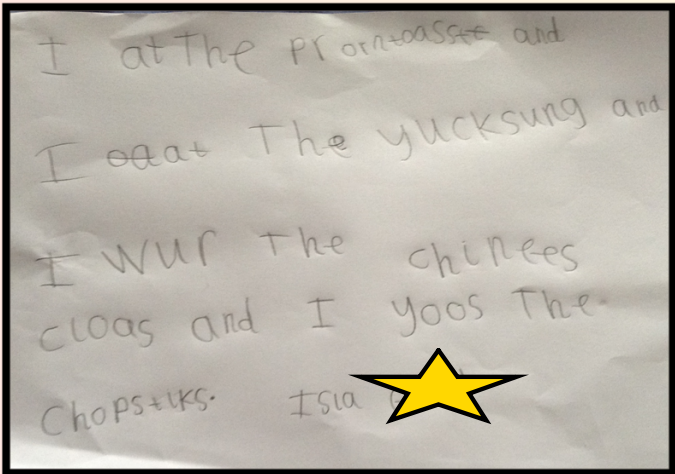 I at The prorntoasst and
I oaat The yucksung and
I wur The chinees
cloas and I yoos The
Chopstiks. Isla